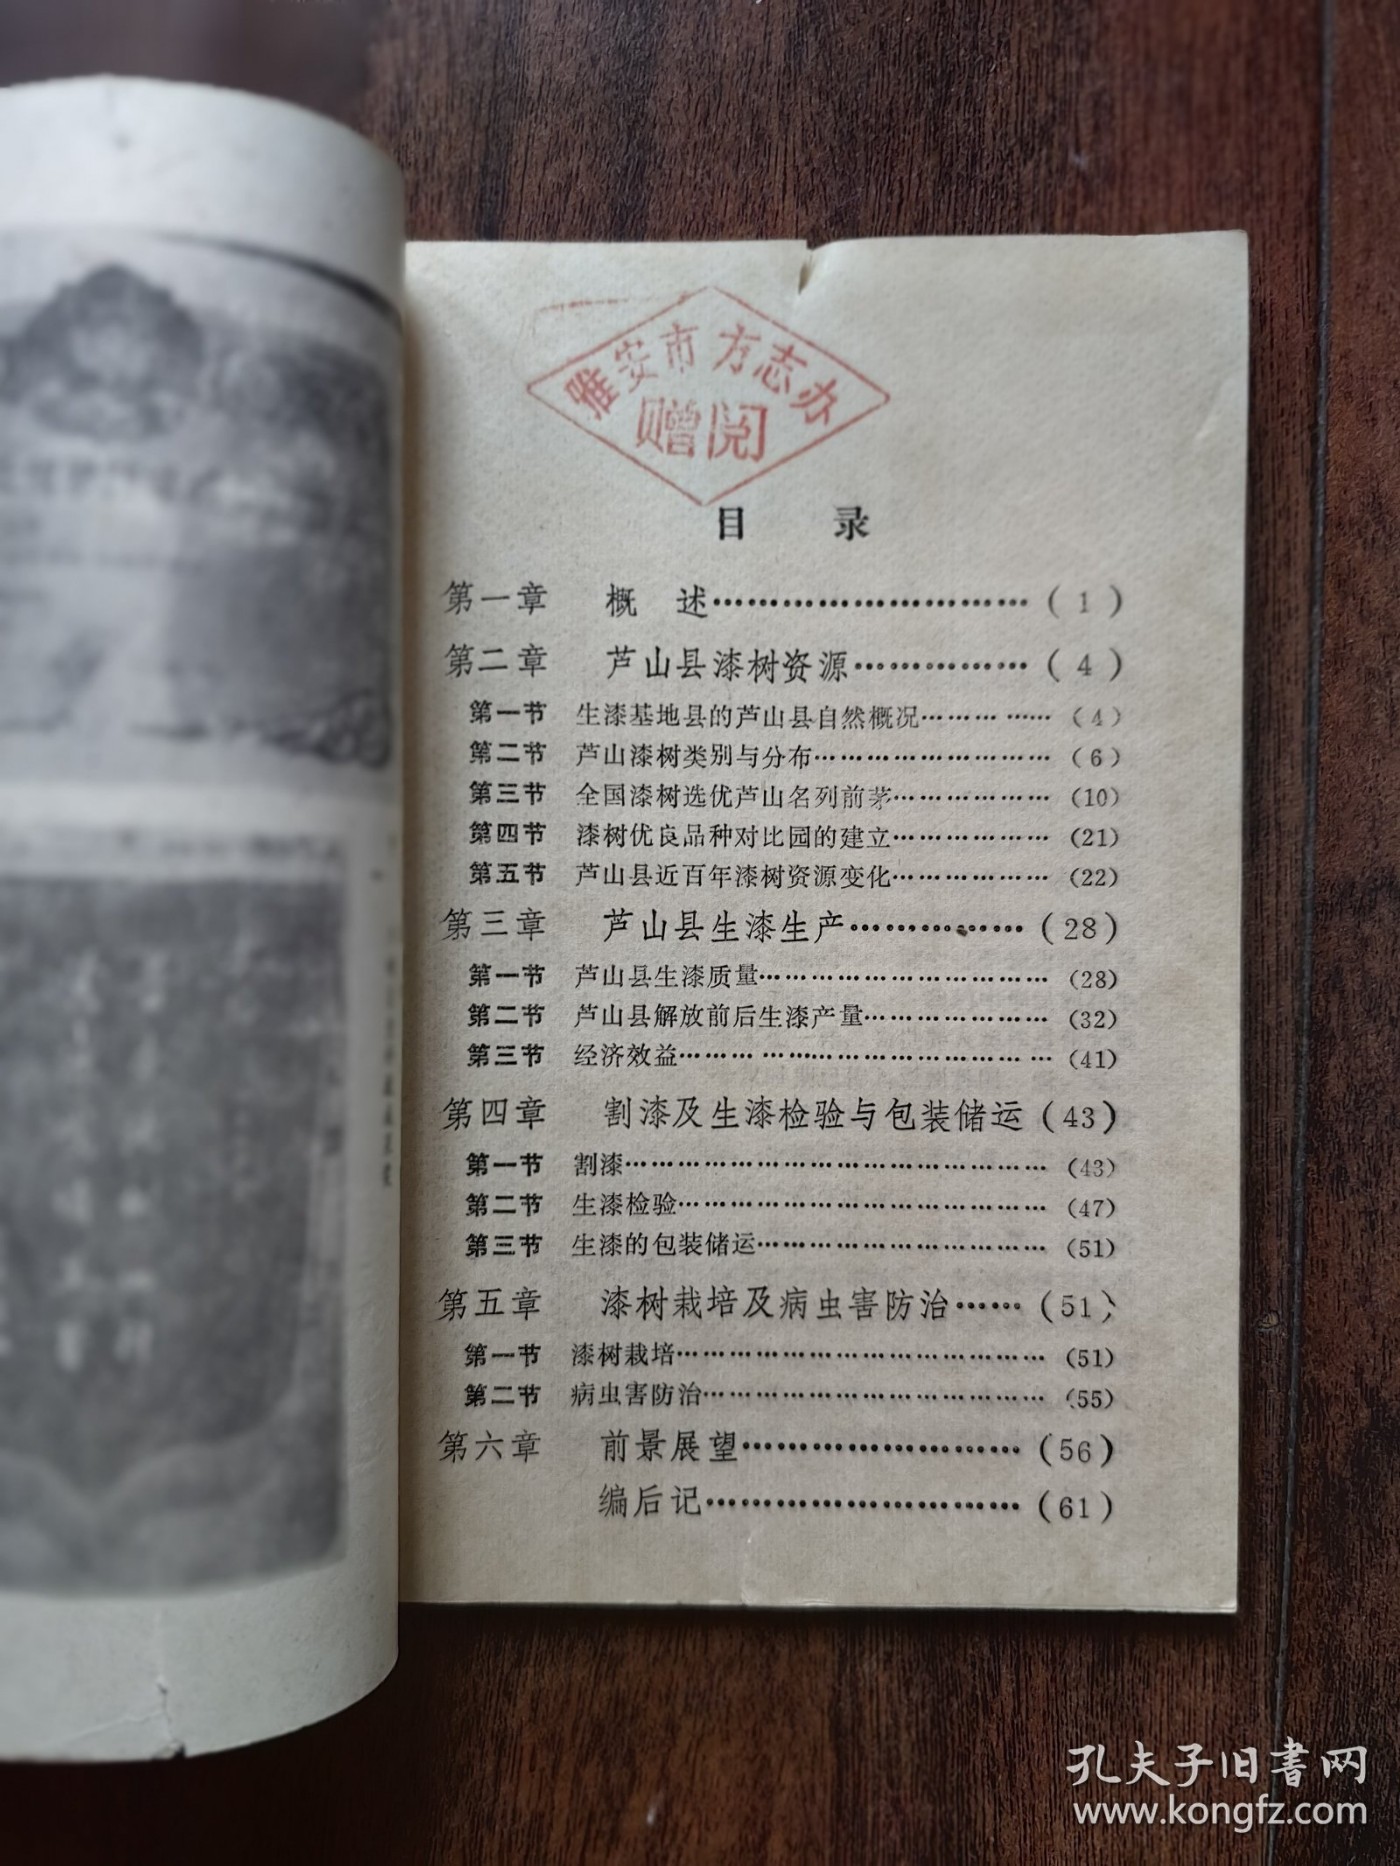 雅安市方志办
赠阅
目 录
第一章 概 述…………………………(1)
第二章 芦山县漆树资源……………(4)
第一节 生漆基地县的芦山县自然概况…………(4)
第二节 芦山漆树类别与分布…………………………(6)
第三节 全国漆树选优芦山名列前茅………………(10)
第四节 漆树优良品种对比园的建立………………(21)
第五节 芦山县近百年漆树资源变化………………(22)
第三章 芦山县生漆生产……………(28)
第一节 芦山县生漆质量………………………………(28)
第二节 芦山县解放前后生漆产量…………………(32)
第三节 经济效益………………………………………(41)
第四章 割漆及生漆检验与包装储运(43)
第一节 割漆……………………………………………(43)
第二节 生漆检验………………………………………(47)
第三节 生漆的包装储运………………………………(51)
第五章 漆树栽培及病虫害防治……(51)
第一节 漆树栽培………………………………………(51)
第二节 病虫害防治……………………………………(55)
第六章 前景展望……………………(56)
编后记………………………(61)
孔夫子旧書网
www.kongfz.com